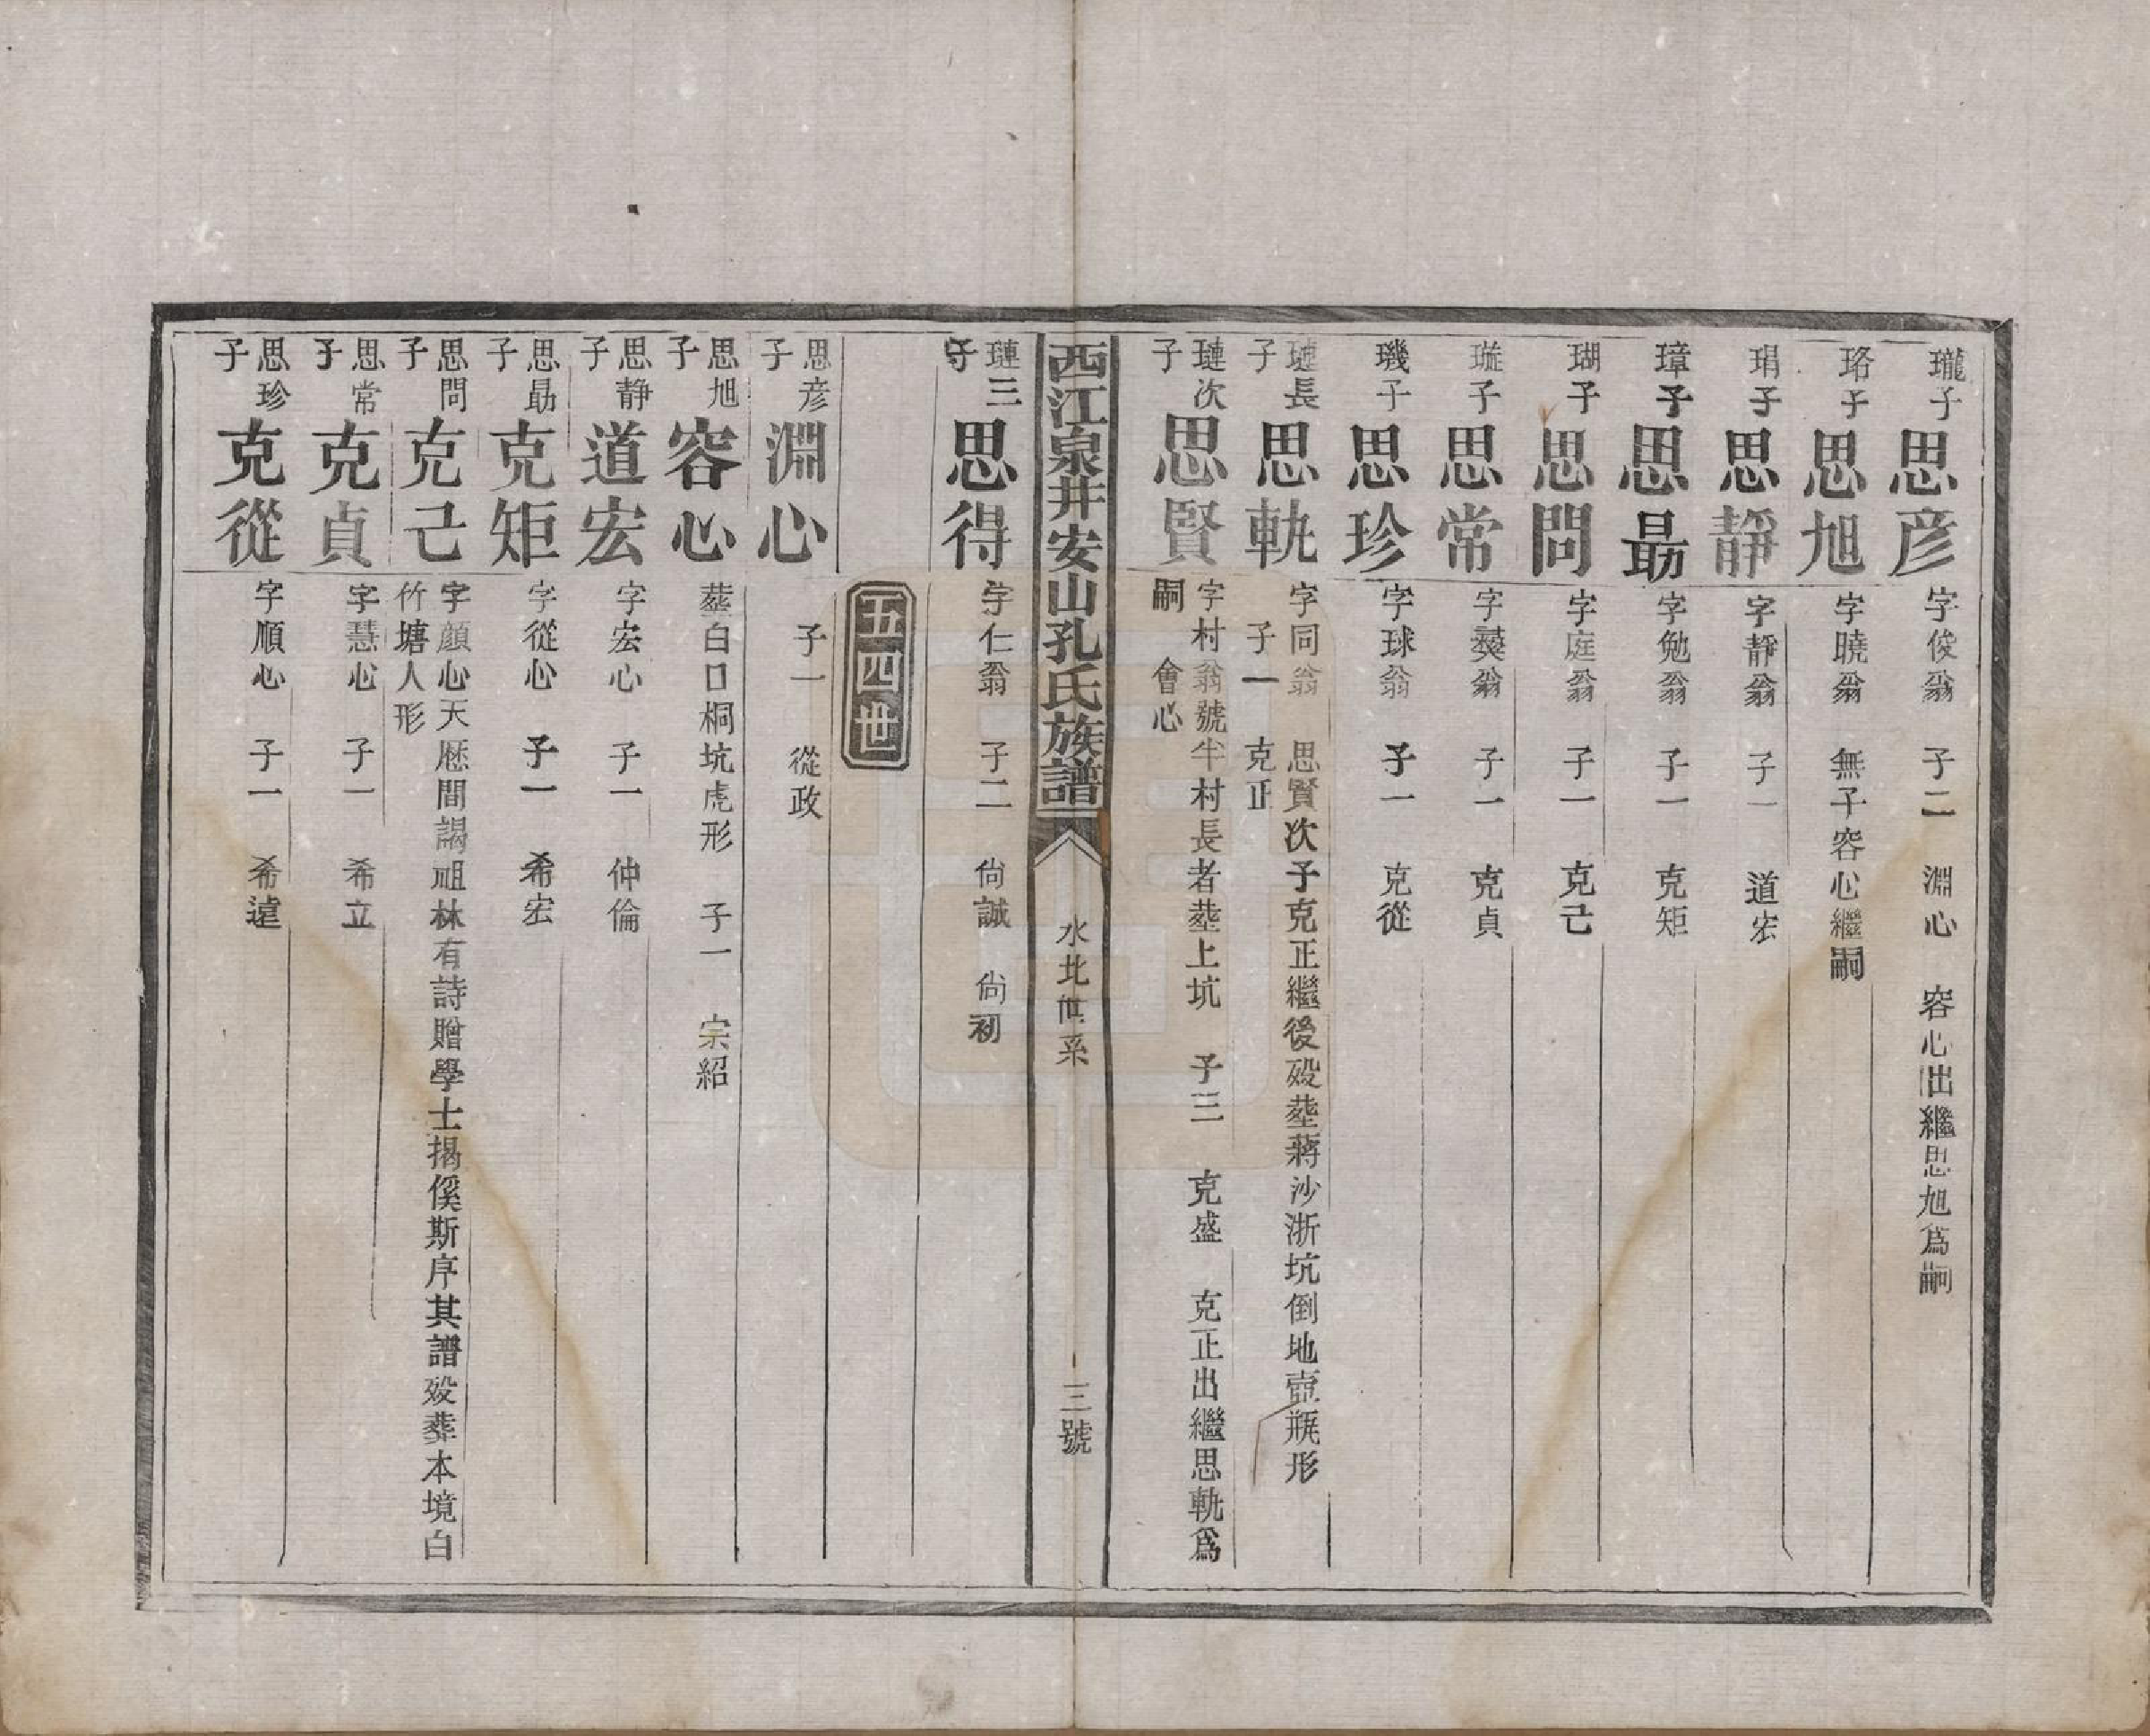 瓏子思彦字俊翁 子二 淵心 容心出繼思旭爲嗣
珞子思旭字曉翁 無子容心繼嗣
琄子思靜字靜翁 子一 道宏
璋子思勗字勉翁 子一 克矩
瑚子思問字庭翁 子一 克己
璇子思常字翁 子一 克貞
璣子思珍字球翁 子一 克從
璉長子思軌字同翁 思賢次子克正繼後殁塟蔣沙浙坑倒地壺瓶形
子一 克正
璉次子思賢字村翁號半村長者塟上坑 子三 克盛 克正出繼思軌爲
嗣 會心
西江泉井安山孔氏族譜 水北世系 三號
璉三子思得字仁翁 子二 尙誠 尙初
五四世
思彦子淵心 子一 從政
思旭子容心塟白口桐坑虎形 子一 宗紹
思靜子道宏字宏心 子一 仲倫
思勗子克矩字從心 子一 希宏
思問子克己字顔心天厯間謁祖林有詩贈學士揭傒斯序其譜殁葬本境白
竹塘人形
思常子克貞字慧心 子一 希立
思珍子克從字順心 子一 希遠